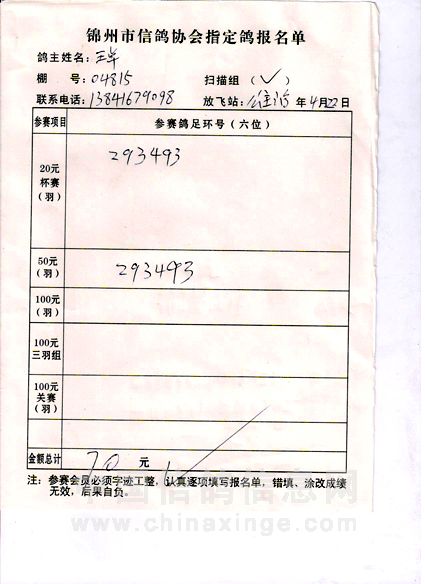 锦州市信鸽协会指定鸽报名单
鸽主姓名：王军
棚　号：04815　扫描组（✓）
联系电话：13841679098　放飞站：　年4月22日
参赛项目　参赛鸽足环号（六位）
20元
杯赛
（羽）
293493
50元
（羽）
293493
100元
（羽）
100元
三羽组
100元
关赛
（羽）
金额总计　70 元
注：参赛会员必须字迹工整，认真逐项填写报名单，错填、涂改成绩
无效，后果自负。
中国信鸽信息网
www.chinaxinge.com